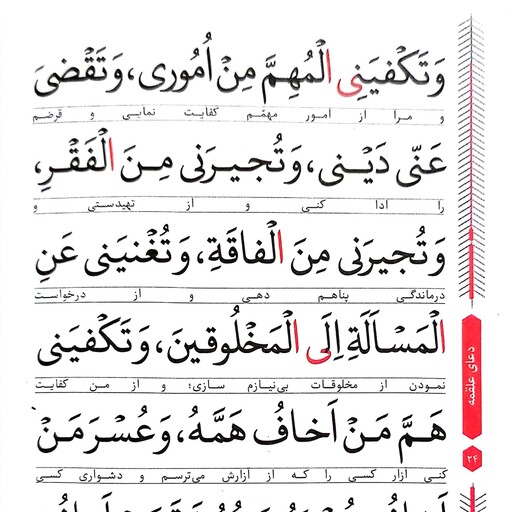 وَتَكْفِيَنِى الْمُهِمَّ مِنْ اُمُورى، وَتَقْضِىَ
و مرا از امور مهمّم کفایت نمایی و قرضم
عَنّى دَيْنى، وَتُجيرَنى مِنَ الْفَقْرِ،
را ادا کنی و از تهیدستی و
وَتُجيرَنى مِنَ الْفاقَةِ، وَتُغْنيَنى عَنِ
درماندگی پناهم دهی و از درخواست
الْمَسْاَلَةِ اِلَى الْمَخْلُوقينَ، وَتَكْفِيَنى
نمودن از مخلوقات بی‌نیازم سازی؛ و از من کفایت
هَمَّ مَنْ اَخافُ هَمَّهُ، وَعُسْرَ مَنْ
کنی آزار کسی را که از آزارش می‌ترسم و دشواری کسی
دعای علقمه
۲۴